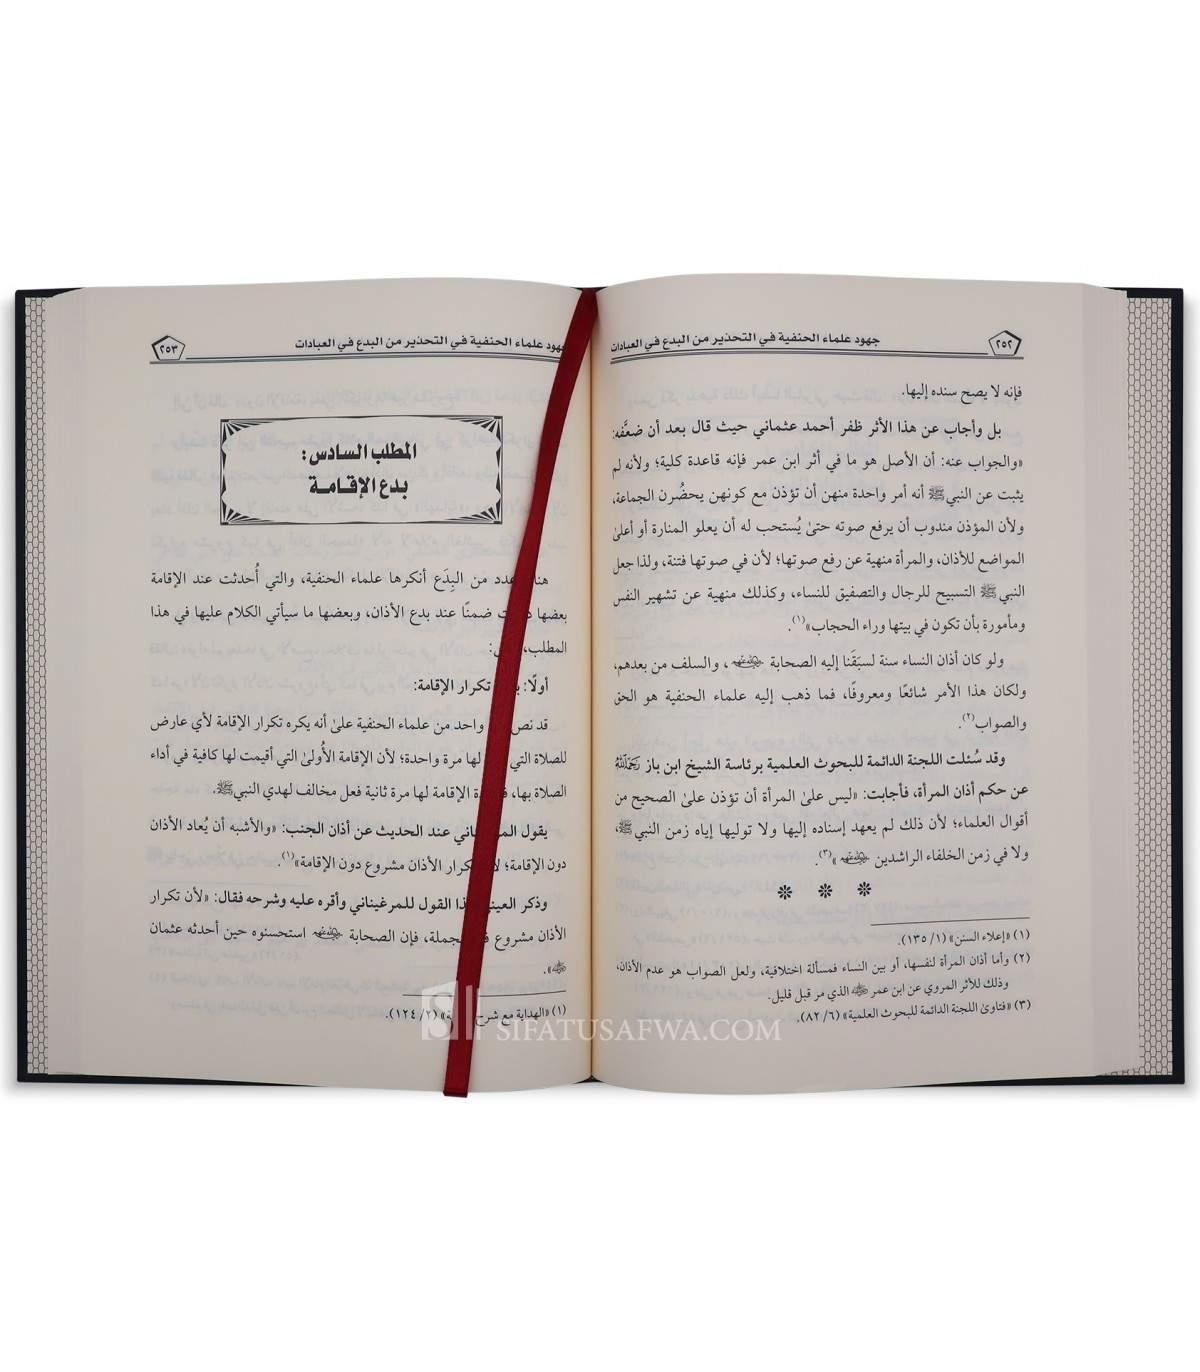 جهود علماء الحنفية في التحذير من البدع في العبادات
٢٥٢
فإنه لا يصح سنده إليها.
بل وأجاب عن هذا الأثر ظفر أحمد عثماني حيث قال بعد أن ضعَّفه:
«والجواب عنه: أن الأصل هو ما في أثر ابن عمر فإنه قاعدة كلية؛ ولأنه لم
يثبت عن النبي ﷺ أنه أمر واحدة منهن أن تؤذن مع كونهن يحضُرن الجماعة،
ولأن المؤذن مندوب أن يرفع صوته حتىٰ يُستحب له أن يعلو المنارة أو أعلىٰ
المواضع للأذان، والمرأة منهية عن رفع صوتها؛ لأن في صوتها فتنة، ولذا جعل
النبي ﷺ التسبيح للرجال والتصفيق للنساء، وكذلك منهية عن تشهير النفس
ومأمورة بأن تكون في بيتها وراء الحجاب»(١).
ولو كان أذان النساء سنة لسبَقَنا إليه الصحابة ، والسلف من بعدهم،
ولكان هذا الأمر شائعًا ومعروفًا، فما ذهب إليه علماء الحنفية هو الحق
والصواب(٢).
وقد سُئلت اللجنة الدائمة للبحوث العلمية برئاسة الشيخ ابن باز رحمه الله
عن حكم أذان المرأة، فأجابت: «ليس علىٰ المرأة أن تؤذن علىٰ الصحيح من
أقوال العلماء؛ لأن ذلك لم يعهد إسناده إليها ولا توليها إياه زمن النبي ﷺ،
ولا في زمن الخلفاء الراشدين »(٣).
(١) «إعلاء السنن» (١/ ١٣٥).
(٢) وأما أذان المرأة لنفسها، أو بين النساء فمسألة اختلافية، ولعل الصواب هو عدم الأذان،
وذلك للأثر المروي عن ابن عمر الذي مر قبل قليل.
(٣) «فتاوىٰ اللجنة الدائمة للبحوث العلمية» (٦/ ٨٢).
جهود علماء الحنفية في التحذير من البدع في العبادات
٢٥٣
المطلب السادس:
بدع الإقامة
عدد من البِدَع أنكرها علماء الحنفية، والتي أُحدثت عند الإقامة
بعضها ضمنًا عند بدع الأذان، وبعضها ما سيأتي الكلام عليها في هذا
المطلب،
أولًا: تكرار الإقامة:
قد نص واحد من علماء الحنفية علىٰ أنه يكره تكرار الإقامة لأي عارض
للصلاة التي لها مرة واحدة؛ لأن الإقامة الأُولىٰ التي أقيمت لها كافية في أداء
الصلاة بها، الإقامة لها مرة ثانية فعل مخالف لهدي النبي ﷺ.
يقول عند الحديث عن أذان الجنب: «والأشبه أن يُعاد الأذان
دون الإقامة؛ تكرار الأذان مشروع دون الإقامة»(١).
وذكر العيني القول للمرغيناني وأقره عليه وشرحه فقال: «لأن تكرار
الأذان مشروع الجملة، فإن الصحابة استحسنوه حين أحدثه عثمان
».
(١) «الهداية مع شرح (٢/ ١٢٤).
SIFATUSAFWA.COM